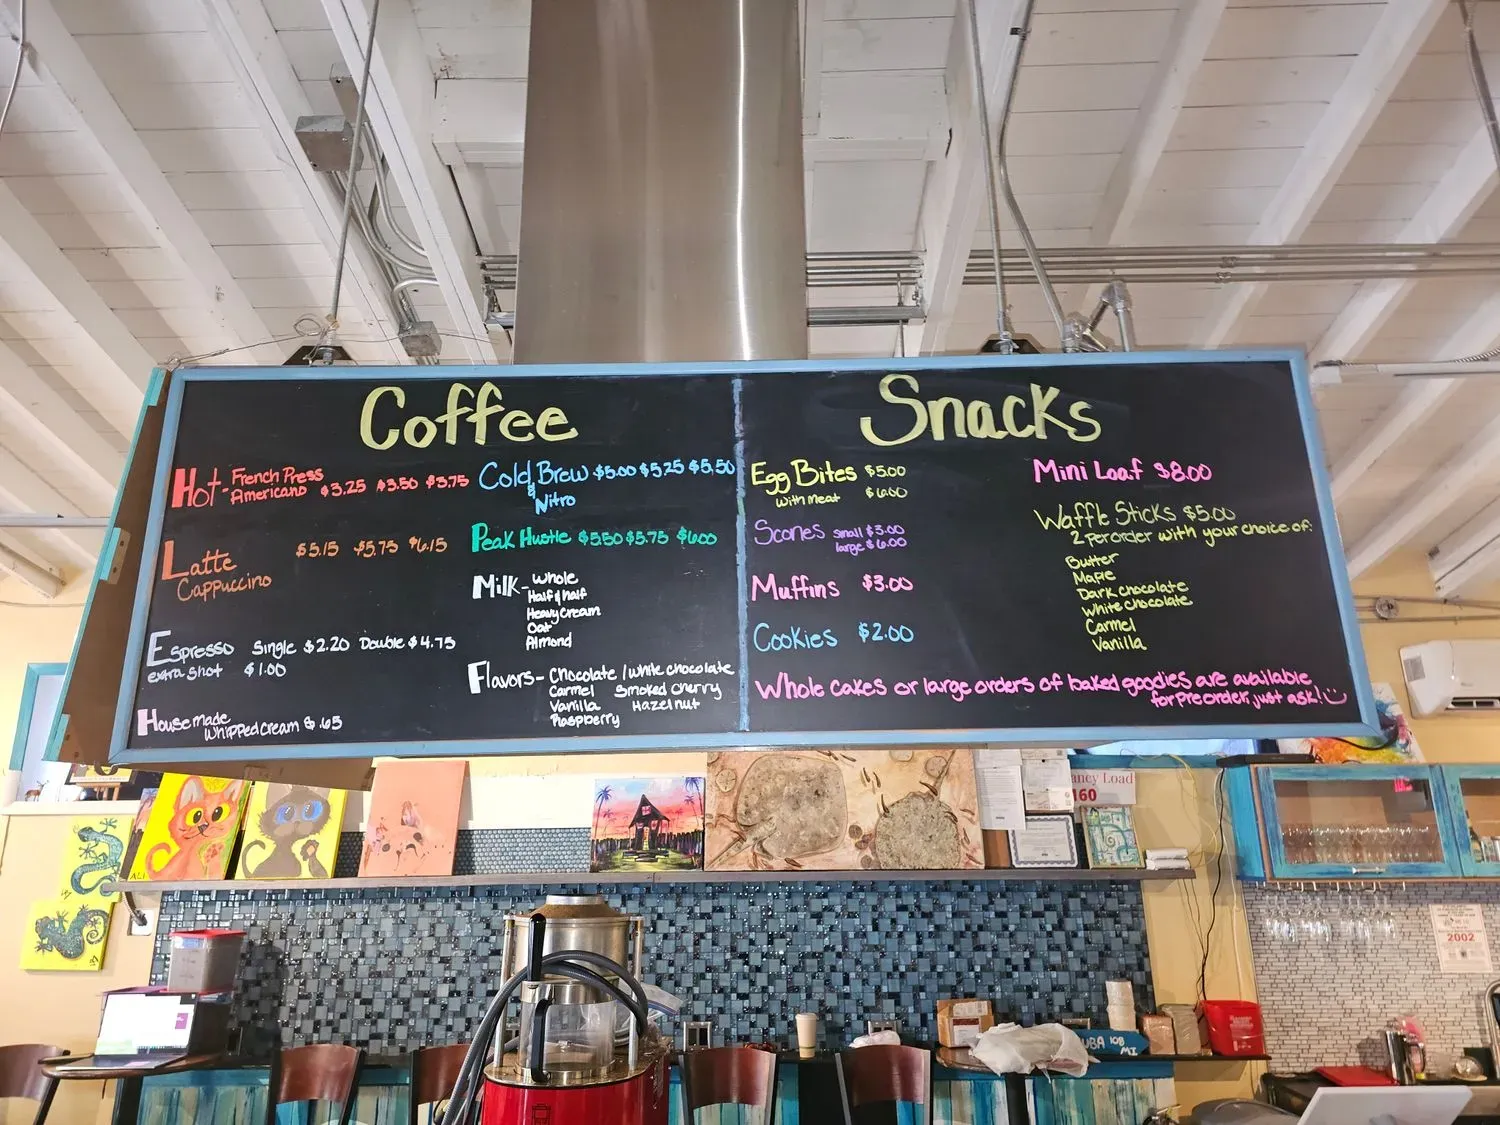 Coffee
Hot - French Press
Americano $3.25 $3.50 $3.75
Latte $5.15 $5.75 $6.15
Cappuccino
Espresso Single $2.20 Double $4.75
extra shot $1.00
Housemade
Whipped cream $.65
Cold Brew $5.00 $5.25 $5.50
& Nitro
Peak Hustle $5.50 $5.75 $6.00
Milk - Whole
Half & half
Heavy Cream
Oat
Almond
Flavors - Chocolate / White chocolate
Carmel Smoked cherry
Vanilla Hazelnut
Raspberry
Snacks
Egg Bites $5.00
with meat $6.00
Scones small $3.00
large $6.00
Muffins $3.00
Cookies $2.00
Mini Loaf $8.00
Waffle Sticks $5.00
2 per order with your choice of:
Butter
Maple
Dark chocolate
White chocolate
Carmel
Vanilla
Whole cakes or large orders of baked goodies are available
for preorder, just ask!
ancy Load
160
ALI
2002
UBA 108
MI